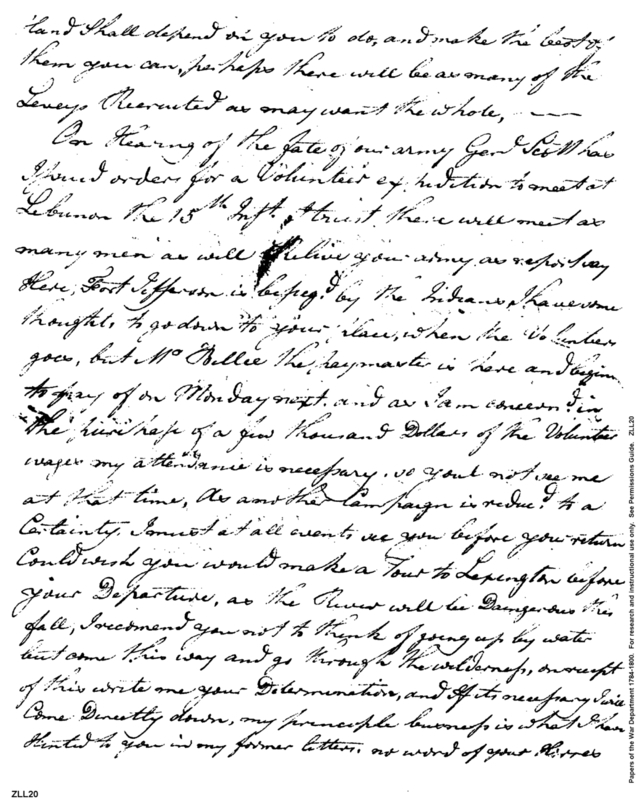 land Shall depend on you to do, and make the best of
them you can, perhaps there will be as many of the
Leveys Recruited as may want the whole, —
On Hearing of the fate of our army Genl Scott has
Issued orders for a Volunteer expedition to meet at
Lebanon the 15th Inst. I trust there will meet as
many men as will relive your army, as report say
Here, Fort Jefferson is beseg'd by the Indians, I have some
thoughts to go down to your place, when the Volunteers
goes, but Mr Bellie the paymaster is here and begins
to pay of on Monday next and as I am concern'd in
the purchase of a few thousand Dollars of the Volunteer
wages my attendance is necessary, so youl not see me
at that time, As another Campaign is reduc'd to a
Certainty. I must at all events see you before you return
Could wish you would make a Tour to Lexington before
your Departure, as the River will be Dangerous this
fall, I recomend you not to think of going up by water
but come this way and go through the wilderness, on receipt
of this write me your Determination, and If its necessary I will
Come Directly down, my principle business is what I have
Hinted to you in my former letters. no word of your
ZLL20
Papers of the War Department 1784-1800. For research and instructional use only. See Permissions Guide. ZLL20